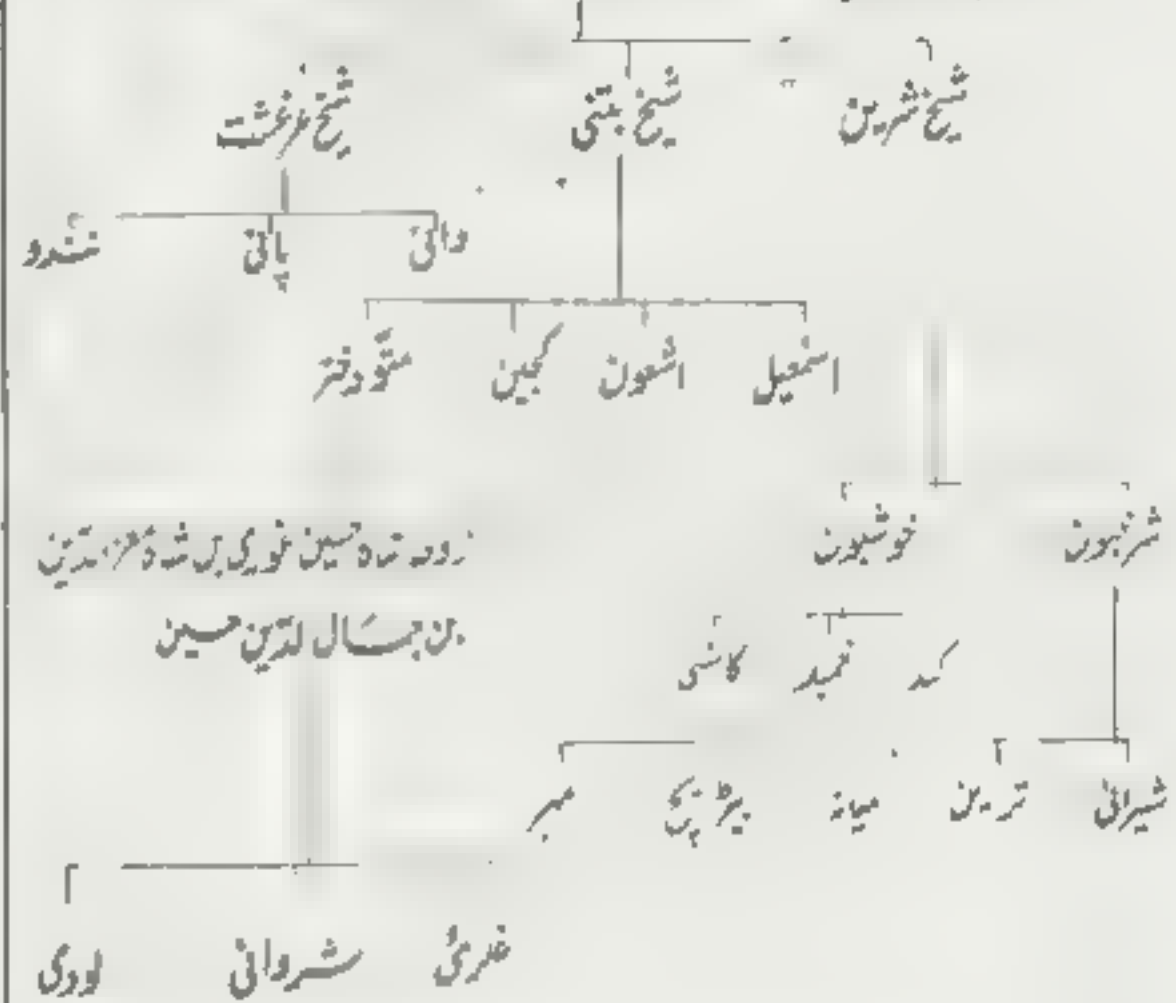 شیخ شرین شیخ بٹنی شیخ غرغشت
دانی پانی مندو
اسمعیل اشعون کجین متّو دختر
شرخبون خوشبون
شاه حسین غوری بن شاه معزالدّین
بن جمال الدّین حسین
کند کانسی
شیرانی ترین میانه بڑیچ
غلزئی شروانی لودی